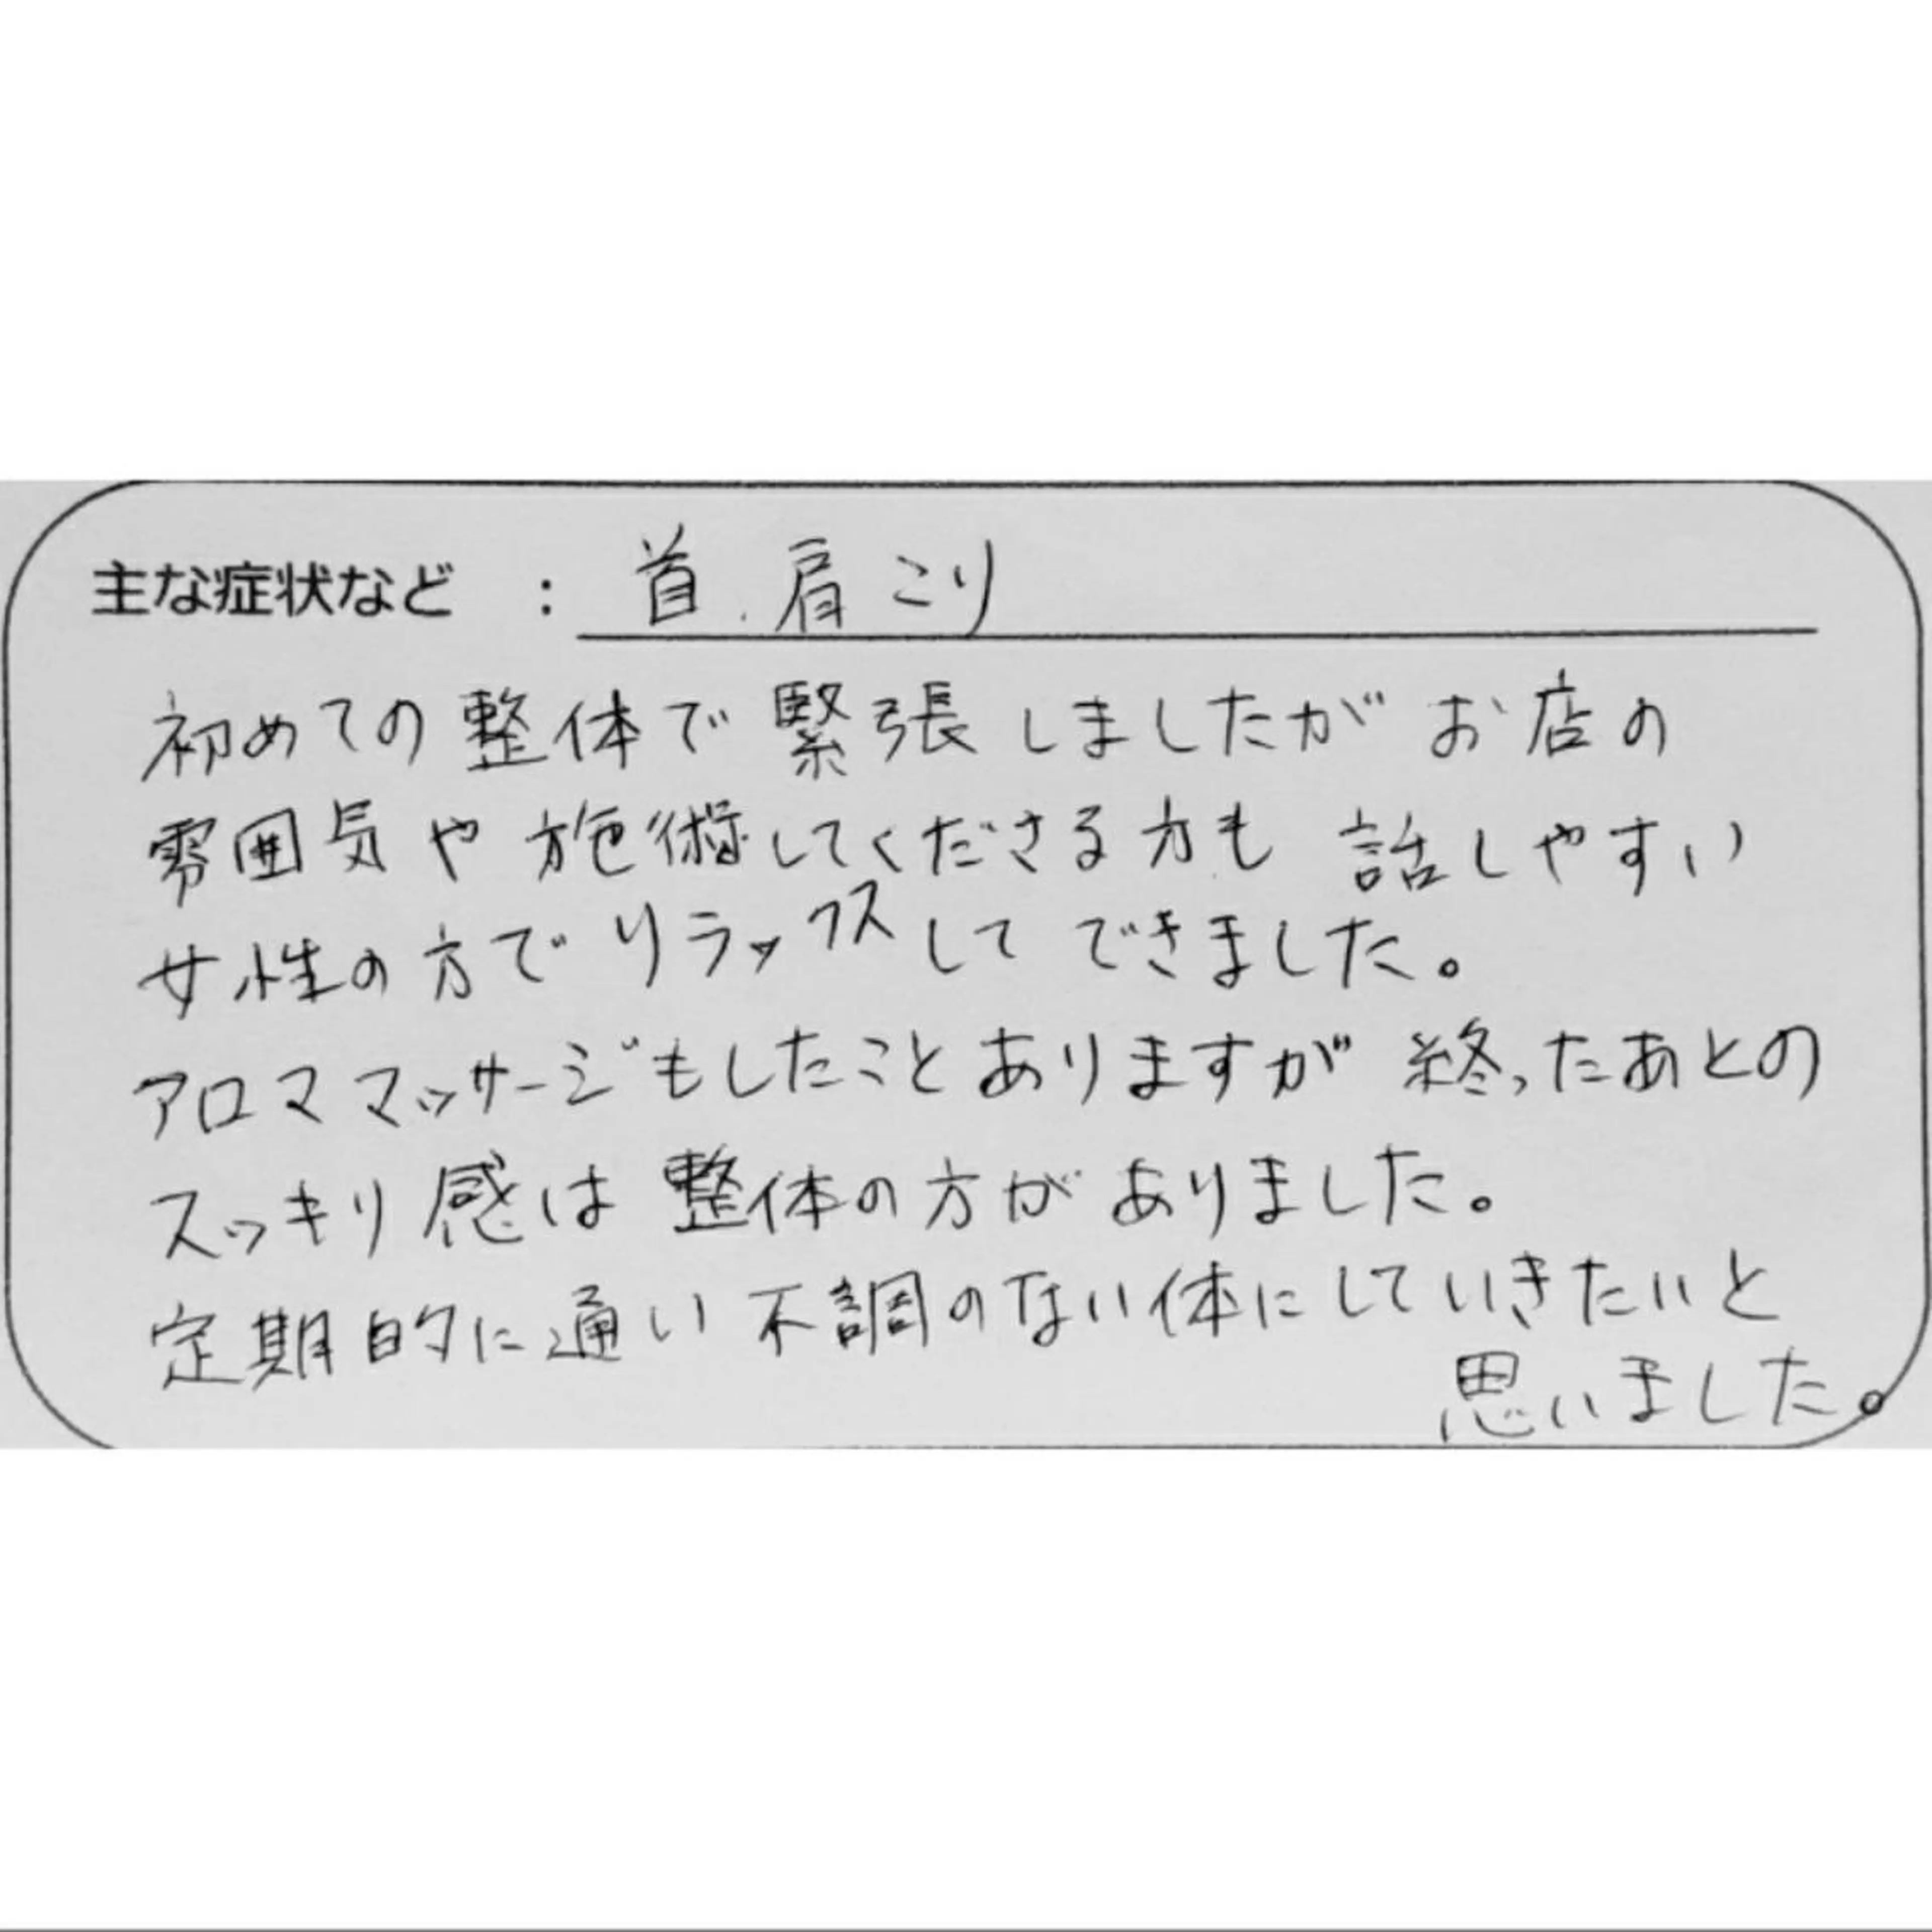 主な症状など : 首.肩こり
初めての整体で緊張しましたがお店の
雰囲気や施術してくださる方も話しやすい
女性の方でリラックスしてできました。
アロママッサージもしたことありますが終ったあとの
スッキリ感は整体の方がありました。
定期的に通い不調のない体にしていきたいと
思いました。